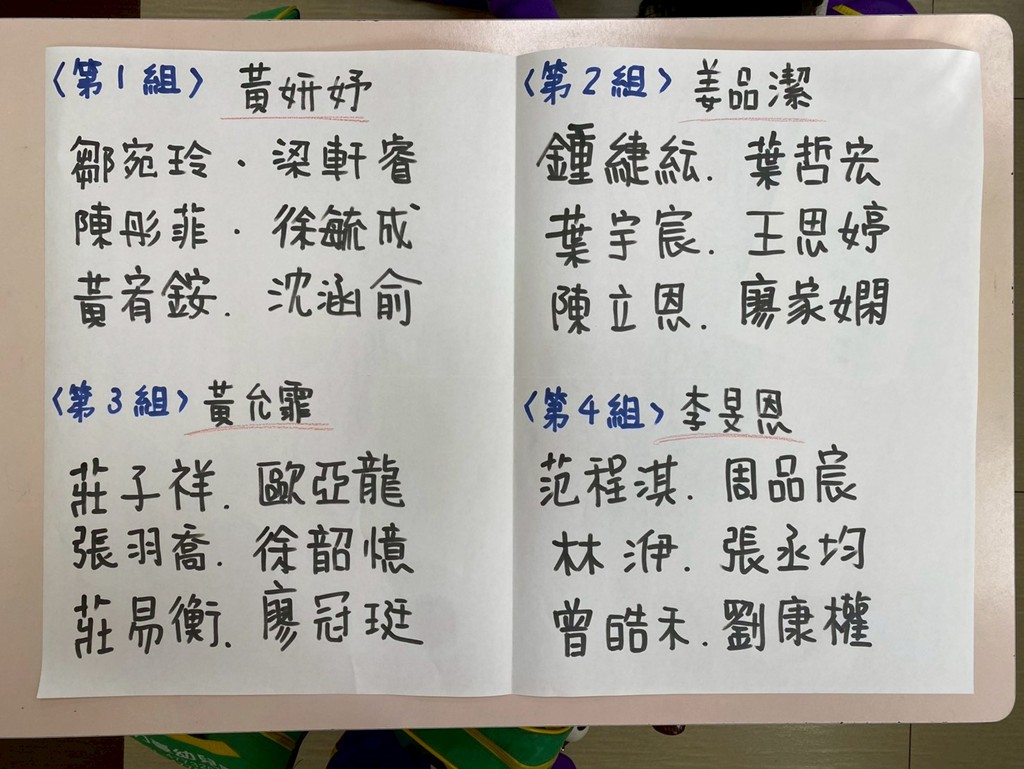 〈第1組〉 黃妍妤
鄒宛玲．梁軒睿
陳彤菲．徐毓成
黃宥銨．沈涵俞
〈第2組〉 姜品潔
鍾緁紜．葉哲宏
葉宇宸．王思婷
陳立恩．廖家嫻
〈第3組〉 黃允霏
莊子祥．歐亞龍
張羽喬．徐韶憶
莊易衡．廖冠珽
〈第4組〉 李旻恩
范程淇．周品宸
林洢．張丞均
曾皓禾．劉康權